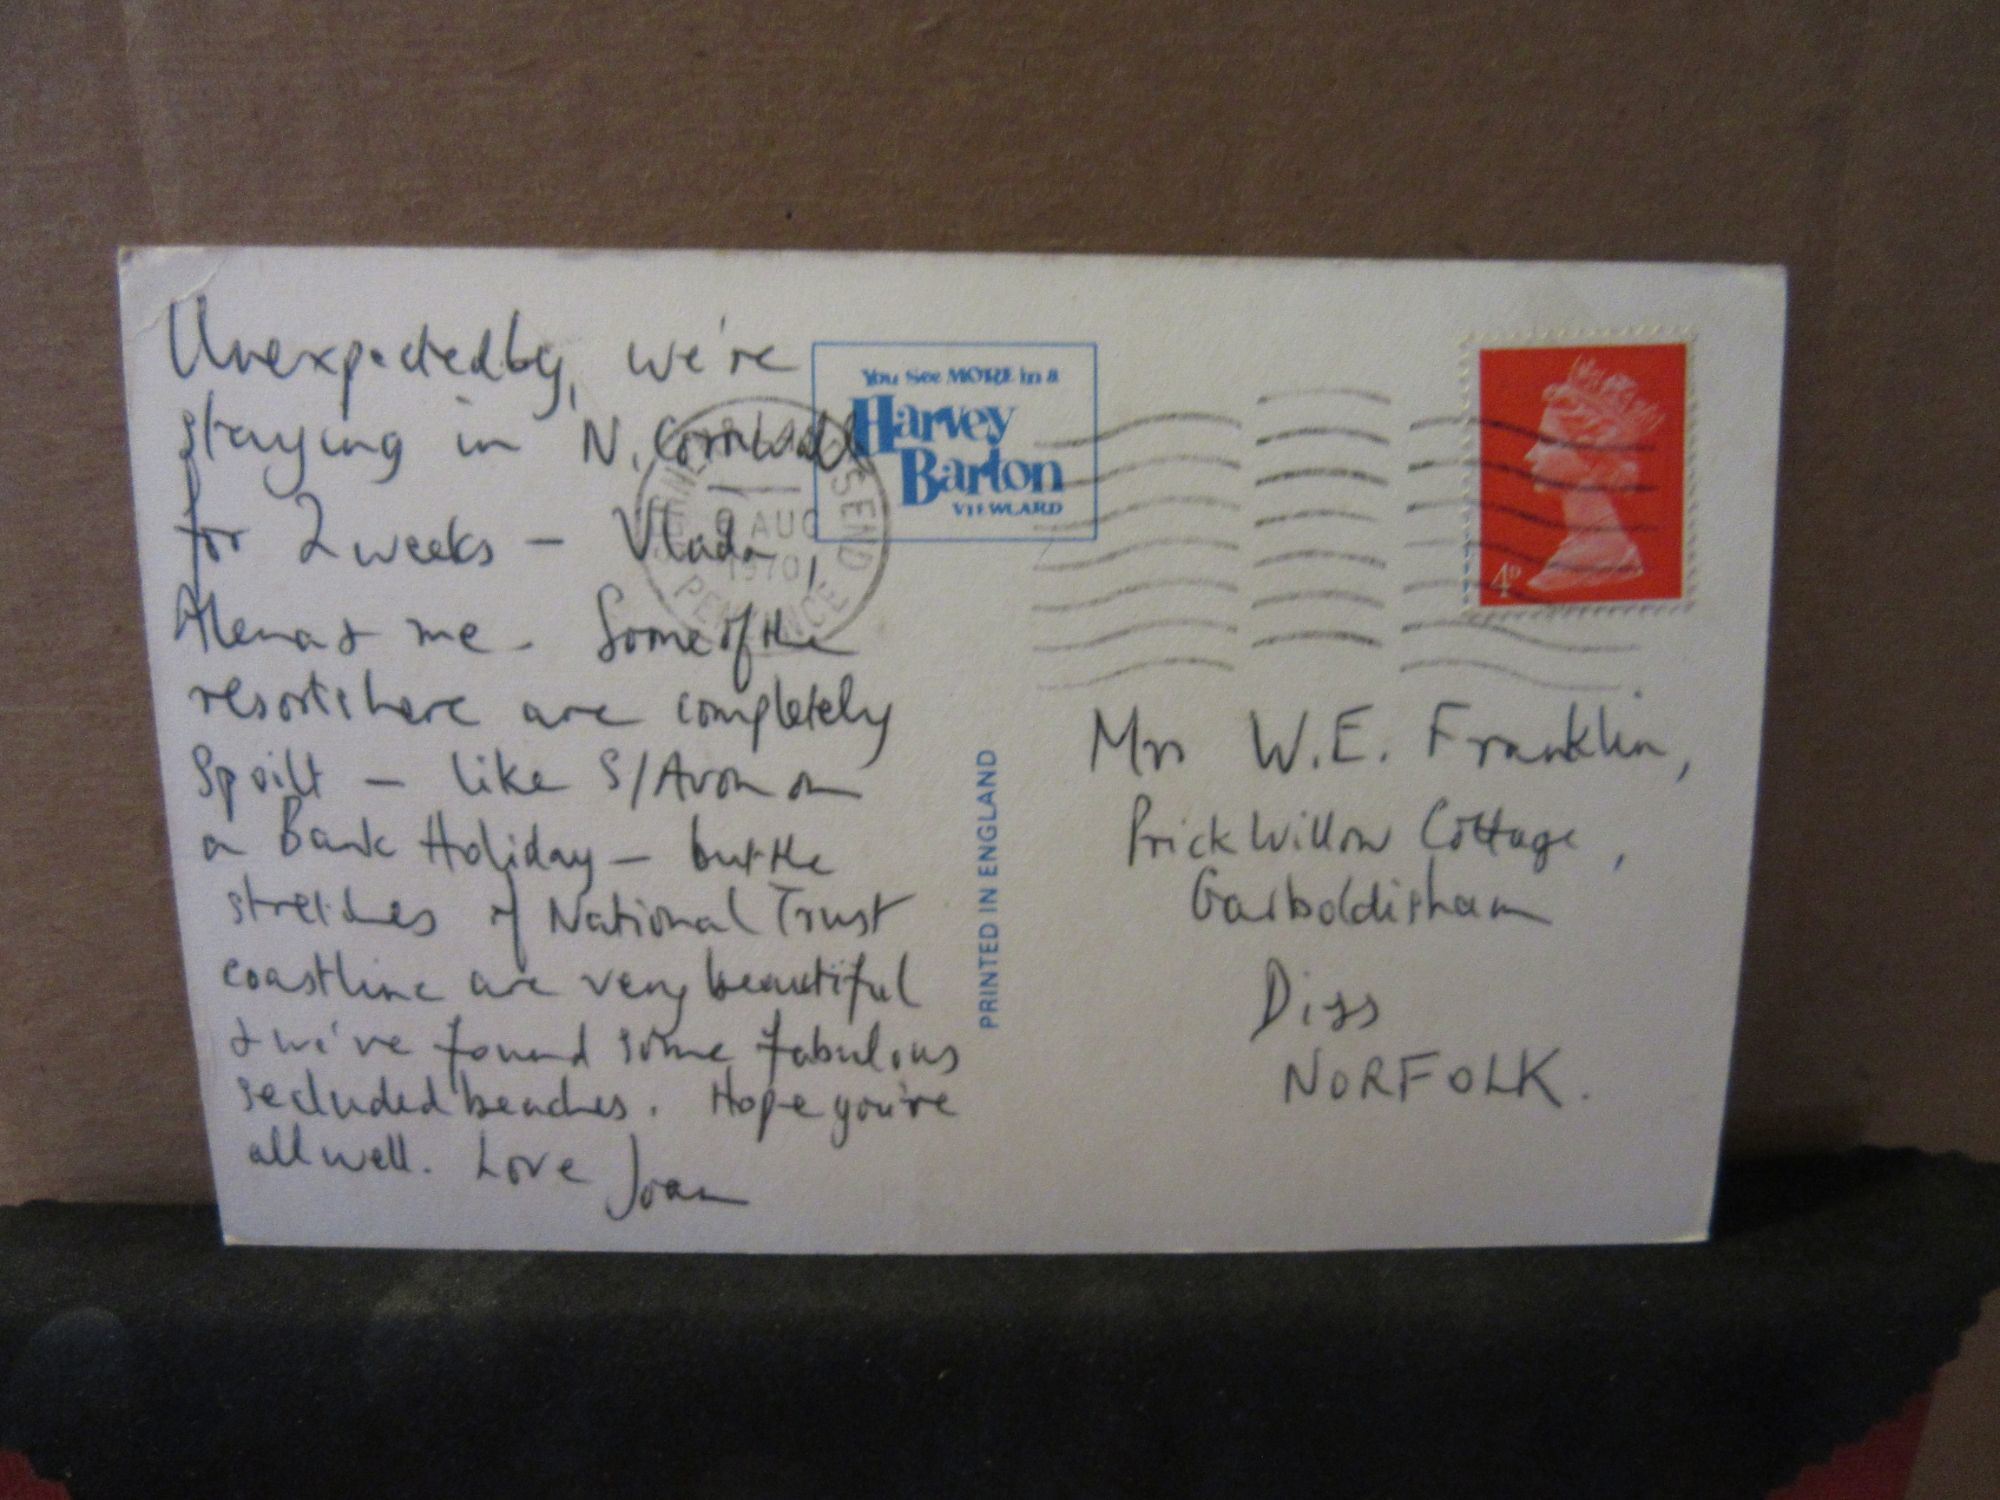 Unexpectedly, we're
staying in N. Cornwall
for 2 weeks – Vlada,
Alena & me – Some of the
resorts here are completely
spoilt – like S/Avon on
a Bank Holiday – but the
stretches of National Trust
coastline are very beautiful
& we've found some fabulous
secluded beaches. Hope you're
all well. Love Joan
You See MORE in a
Harvey
Barton
VIEWCARD
PRINTED IN ENGLAND
AUG
1970
PENZANCE
4D
Mrs W.E. Franklin,
Prick Willow Cottage,
Garboldisham
Diss
NORFOLK.